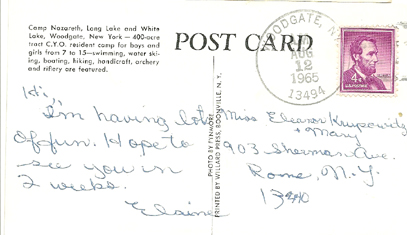 Camp Nazareth, Long Lake and White
Lake, Woodgate, New York — 400-acre
tract C.Y.O. resident camp for boys and
girls from 7 to 15—swimming, water ski-
ing, boating, hiking, handicraft, archery
and riflery are featured.
POST CARD
WOODGATE, N.Y.
AUG
12
1965
13494
4¢
Hi,
I'm having lots
of fun. Hope to
see you in
2 weeks.
Elaine
PHOTO BY FYNMORE
PRINTED BY WILLARD PRESS, BOONVILLE, N. Y.
Miss Eleanor Krupowitz
+ Mary
903 Sherman Ave.
Rome, N.Y.
13440